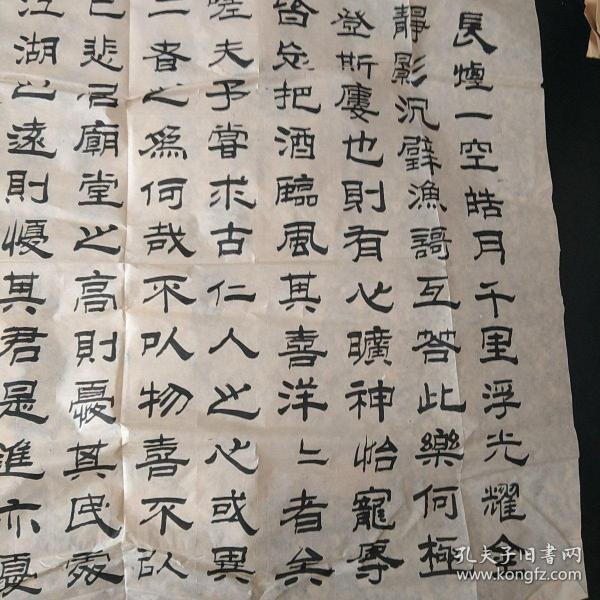 長煙一空皓月千里浮光耀金
靜影沉璧漁謌互荅此樂何極
登斯樓也則有心曠神怡寵辱
皆忘把酒臨風其喜洋〻者矣
嗟夫予嘗求古仁人之心或異
二者之爲何哉不以物喜不以
己悲居廟堂之高則憂其民處
江湖之遠則憂其君是進亦憂
孔夫子旧書网
www.kongfz.com